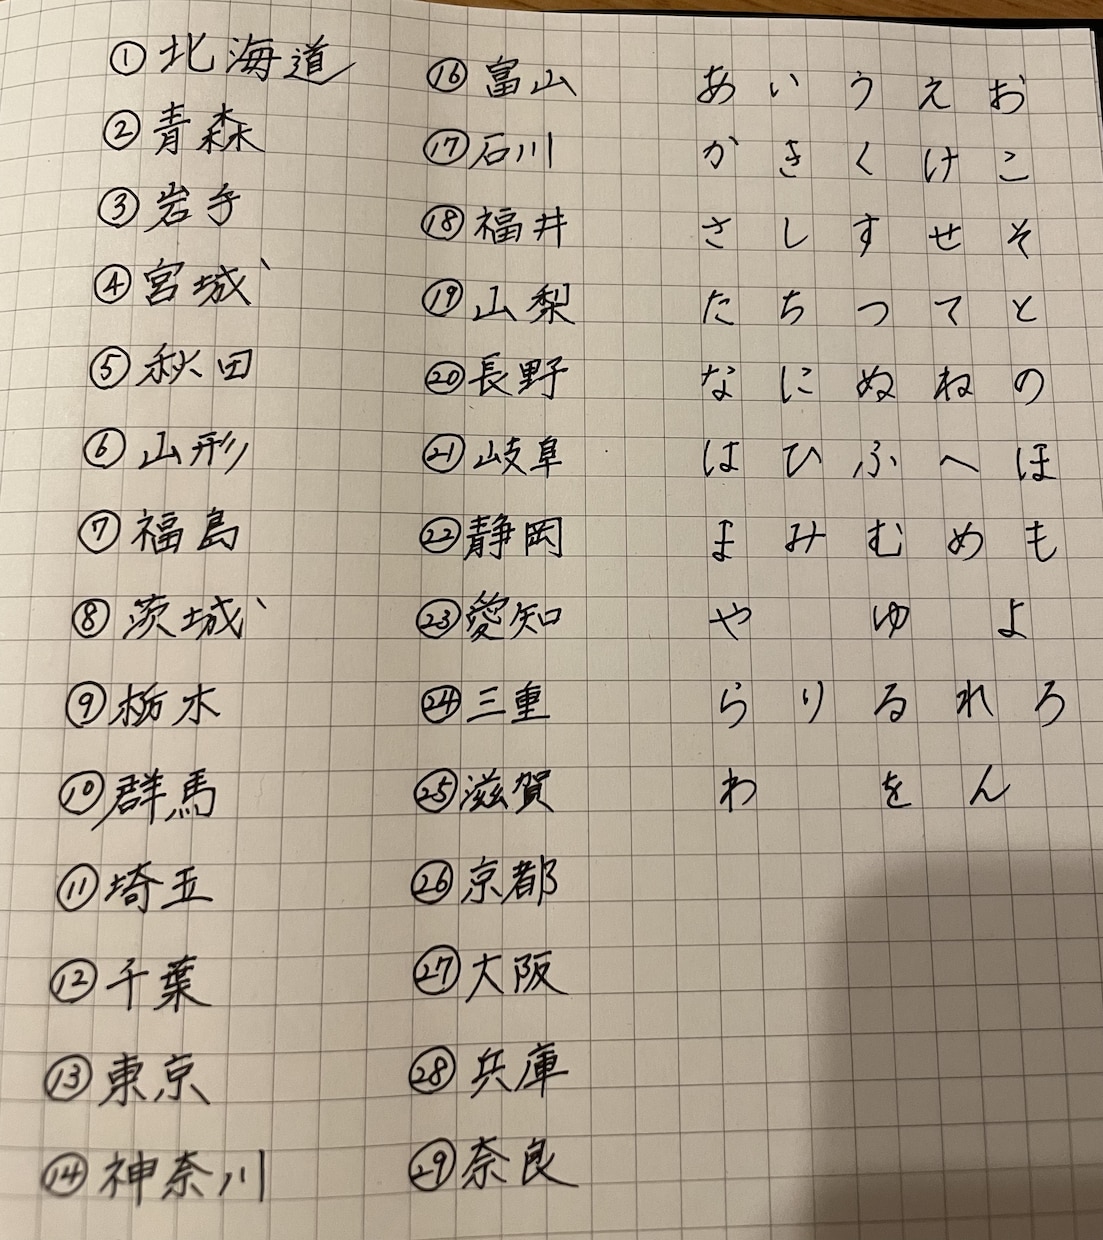 ①北海道
②青森
③岩手
④宮城
⑤秋田
⑥山形
⑦福島
⑧茨城
⑨栃木
⑩群馬
⑪埼玉
⑫千葉
⑬東京
⑭神奈川
⑯富山
⑰石川
⑱福井
⑲山梨
⑳長野
㉑岐阜
㉒静岡
㉓愛知
㉔三重
㉕滋賀
㉖京都
㉗大阪
㉘兵庫
㉙奈良
あ い う え お
か き く け こ
さ し す せ そ
た ち つ て と
な に ぬ ね の
は ひ ふ へ ほ
ま み む め も
や ゆ よ
ら り る れ ろ
わ を ん